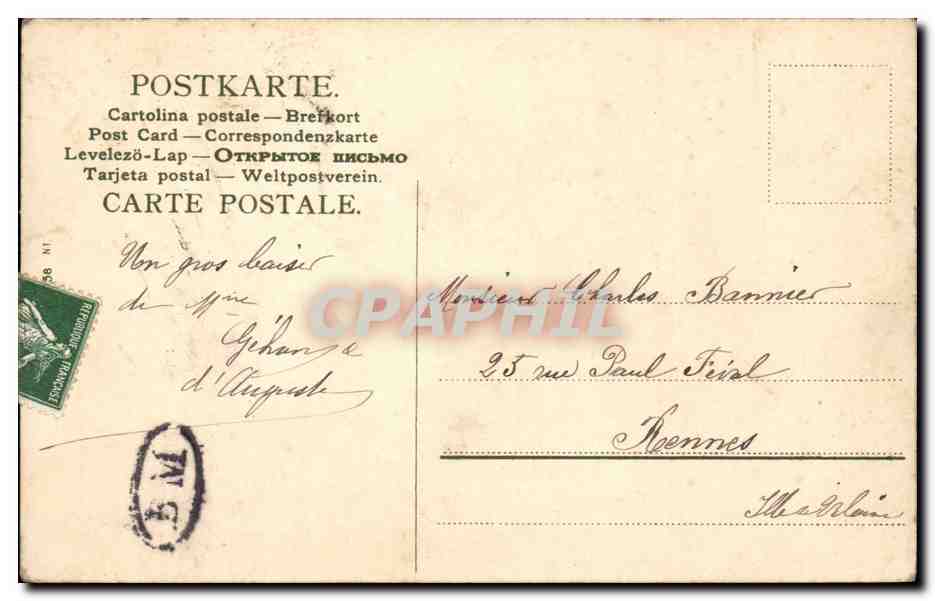 POSTKARTE.
Cartolina postale — Brefkort
Post Card — Correspondenzkarte
Levelezö-Lap — Открытое письмо
Tarjeta postal — Weltpostverein.
CARTE POSTALE.
Un gros baiser
de Mme
Géhan &
d'Auguste
58 N1
REPUBLIQUE FRANÇAISE
BM
CPAPHIL
Monsieur Charles Bannier
25 rue Paul Féval
Rennes
Ille & Vilaine